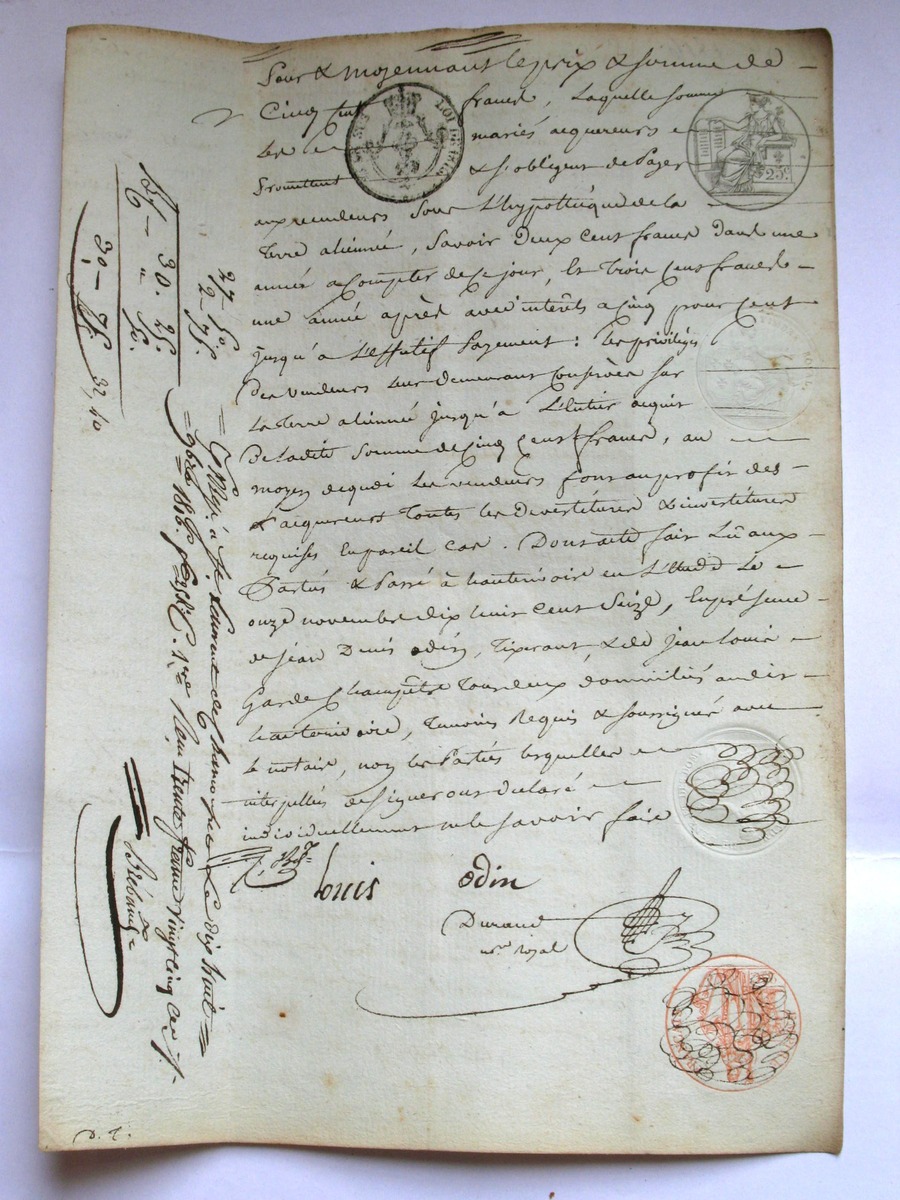 Pour & moyennant le prix & somme de
Cinq cent francs, laquelle somme
les mariés acquereurs
promettent & s'obligent de Payer
aux vendeurs sous L'hypothèque de la
Terre alienné, Savoir Deux Cent francs dans une
année a Compter de Ce jour, Et Trois Cent francs
une année après avec intérêts a Cinq pour Cent
jusqu'a L'effetif Payement: les privilèges
Des vendeurs leur demeurant Conservés sur
la Terre alienné jusqu'à L'entier acquit
De ladite Somme de Cinq Cent francs, au
moyen dequoi les vendeurs font au profit des
acquereurs Toutes les devestitures & investitures
requises En pareil Cas. Dont acte fait Lû aux
Parties & Passé à hauterivoire en L'Etude Le
onze novembre dix huit Cent Seize, En présence
de jean Denis odin, Tixerant, & de jean Louis
Garde Champêtre Tous deux domiciliés audit
hauterivoire, Temoins Requis & Soussignés avec
le notaire, non les Parties lesquelles
interpellés de Signer ont déclaré
individuellement ne le Savoir faire
Louis odin
Durand
n.re royal
LOI DE
25c.
27 - 50.
2 - 75.
30. 25.
30 - 75.
32, 40
Laurent de Chamousset Le dix huit
9bre 1816. 1re trente francs vingt cinq
D. T.